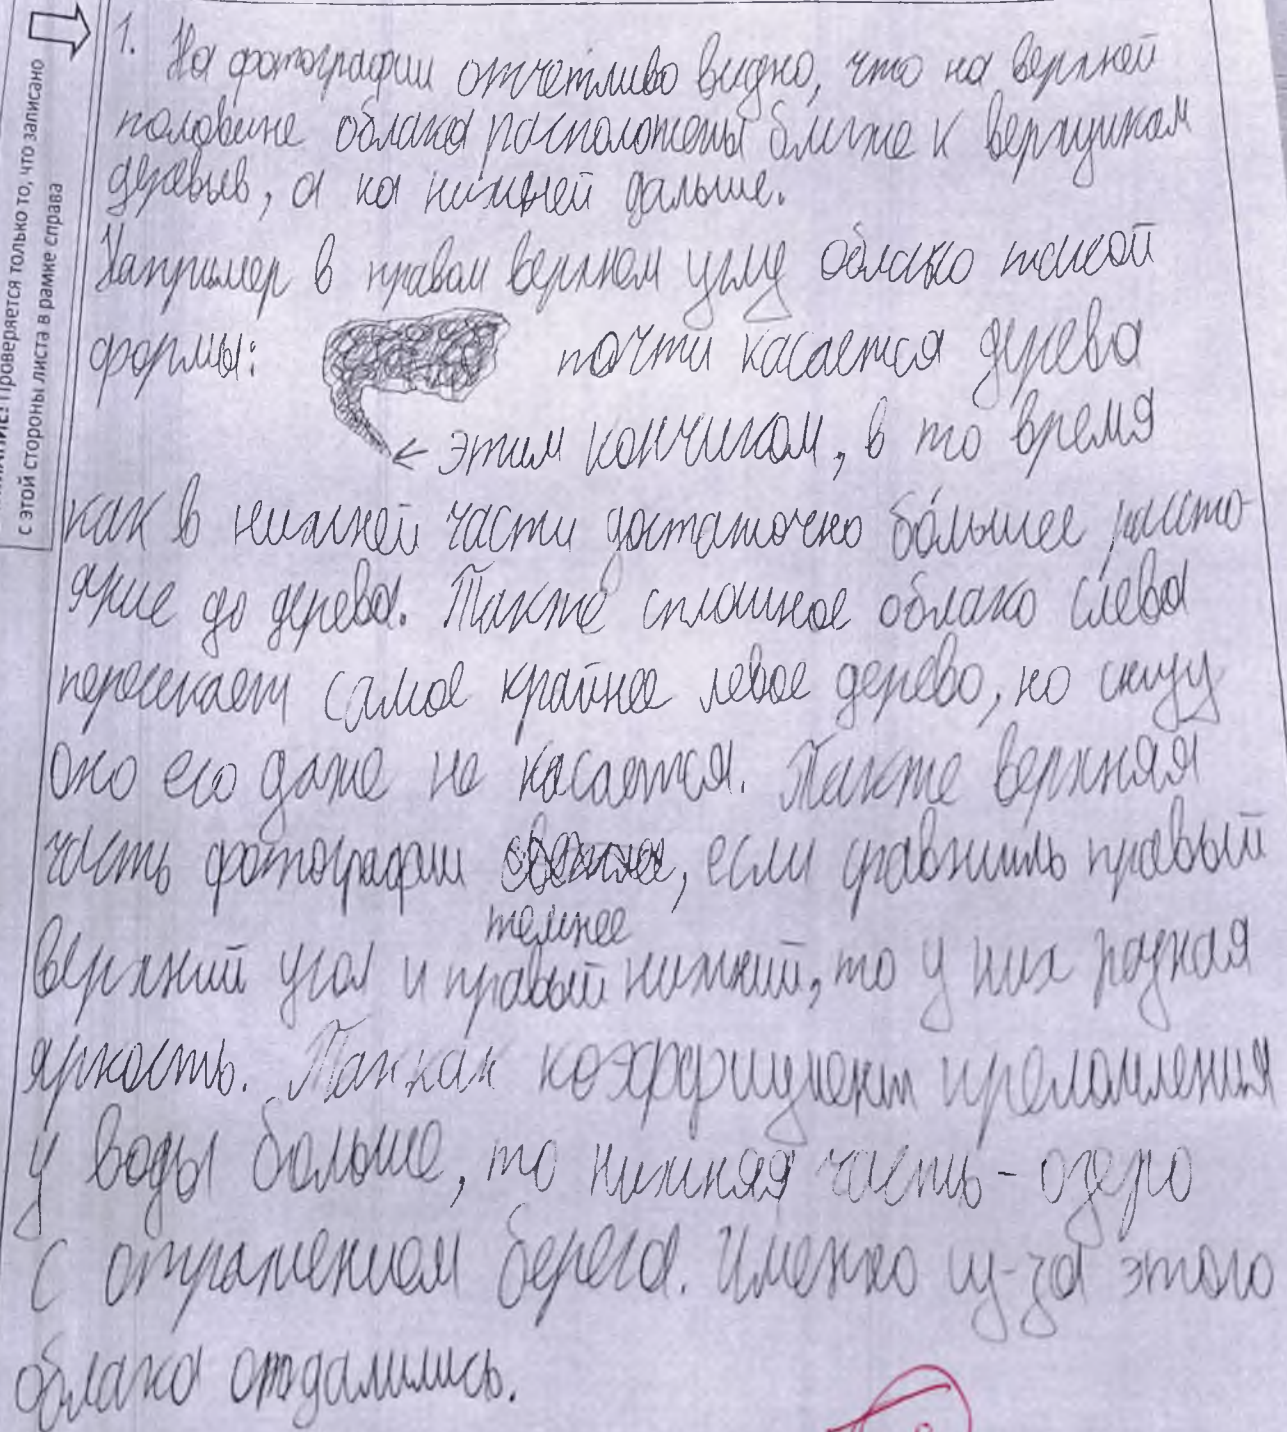 ВНИМАНИЕ! Проверяется только то, что записано
с этой стороны листа в рамке справа
1. На фотографии отчётливо видно, что на верхней
половине облака расположены ближе к верхушкам
деревьев, а на нижней дальше.
Например в правом верхнем углу облако такой
формы: почти касается дерева
← этим кончиком, в то время
как в нижней части достаточно бо́льшее рассто-
яние до дерева. Также сплошное облако слева
пересекает самое крайнее левое дерево, но снизу
оно его даже не касается. Также верхняя
часть фотографии темнее, если сравнить правый
верхний угол и правый нижний, то у них разная
яркость. Так как коэффициент преломления
у воды больше, то нижняя часть - озеро
с отражением берега. Именно из-за этого
облака отдалились.